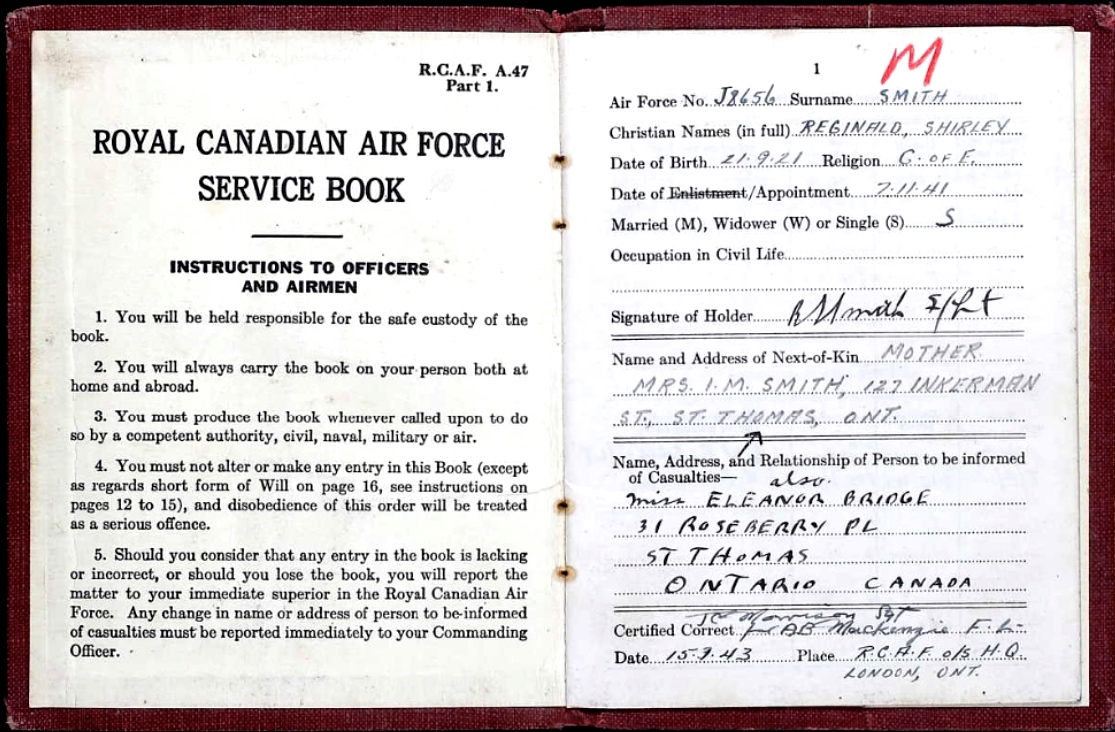 R.C.A.F. A.47
Part 1.
ROYAL CANADIAN AIR FORCE
SERVICE BOOK
INSTRUCTIONS TO OFFICERS
AND AIRMEN
1. You will be held responsible for the safe custody of the
book.
2. You will always carry the book on your person both at
home and abroad.
3. You must produce the book whenever called upon to do
so by a competent authority, civil, naval, military or air.
4. You must not alter or make any entry in this Book (except
as regards short form of Will on page 16, see instructions on
pages 12 to 15), and disobedience of this order will be treated
as a serious offence.
5. Should you consider that any entry in the book is lacking
or incorrect, or should you lose the book, you will report the
matter to your immediate superior in the Royal Canadian Air
Force. Any change in name or address of person to be informed
of casualties must be reported immediately to your Commanding
Officer.
1 M
Air Force No. J8656 Surname SMITH
Christian Names (in full) REGINALD, SHIRLEY
Date of Birth 21.9.21 Religion C. OF E.
Date of Enlistment/Appointment 7.11.41
Married (M), Widower (W) or Single (S) S
Occupation in Civil Life
Signature of Holder RSSmith F/Lt
Name and Address of Next-of-Kin MOTHER
MRS. I. M. SMITH, 127 INKERMAN
ST., ST. THOMAS, ONT.
Name, Address, and Relationship of Person to be informed
of Casualties— also.
miss ELEANOR BRIDGE
31 ROSEBERRY PL
ST THOMAS
ONTARIO CANADA
Morrison Sgt
Certified Correct for AB Mackenzie F.L.
Date 15.9.43 Place R.C.A.F. O/S H.Q.
LONDON, ONT.